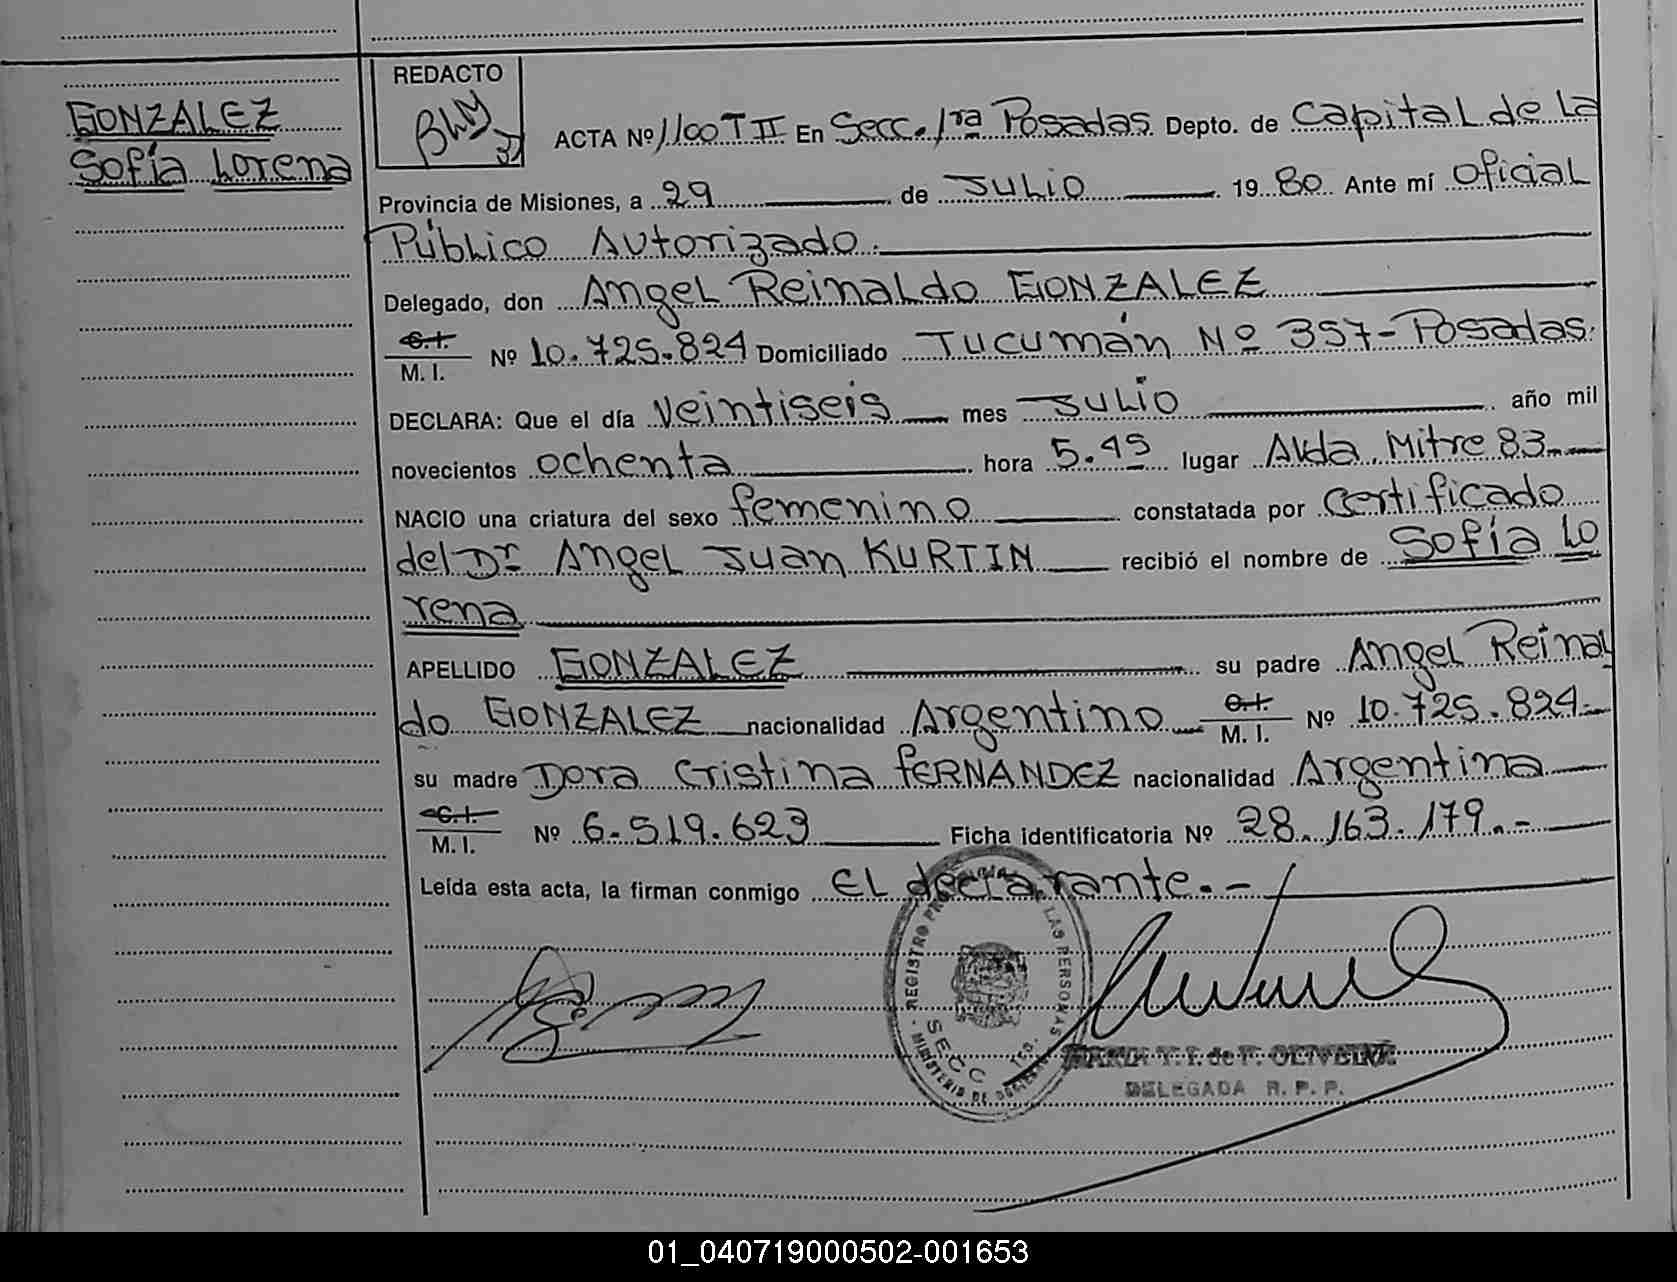 GONZALEZ
Sofía Lorena
REDACTO
ACTA Nº 1100 T II En Secc. 1ra Posadas Depto. de Capital de La
Provincia de Misiones, a 29 de Julio 19 80 Ante mí Oficial
Público Autorizado.
Delegado, don Angel Reinaldo GONZALEZ
C.I.
M. I. Nº 10.725.824 Domiciliado Tucumán Nº 357-Posadas.
DECLARA: Que el día Veintiseis mes Julio año mil
novecientos ochenta hora 5.45 lugar Avda. Mitre 83
NACIO una criatura del sexo femenino constatada por certificado
del Dr. Angel Juan KURTIN recibió el nombre de Sofía Lo
rena
APELLIDO GONZALEZ su padre Angel Reinal
do GONZALEZ nacionalidad Argentino C.I.
M. I. Nº 10.725.824.-
su madre Dora Cristina FERNANDEZ nacionalidad Argentina
C.I.
M. I. Nº 6.519.623 Ficha identificatoria Nº 28.163.179.-
Leída esta acta, la firman conmigo El declarante.-
REGISTRO DE LAS PERSONAS
SECC
MINISTERIO DE
de F. OLIVEIRA
DELEGADA R. P. P.
01_040719000502-001653